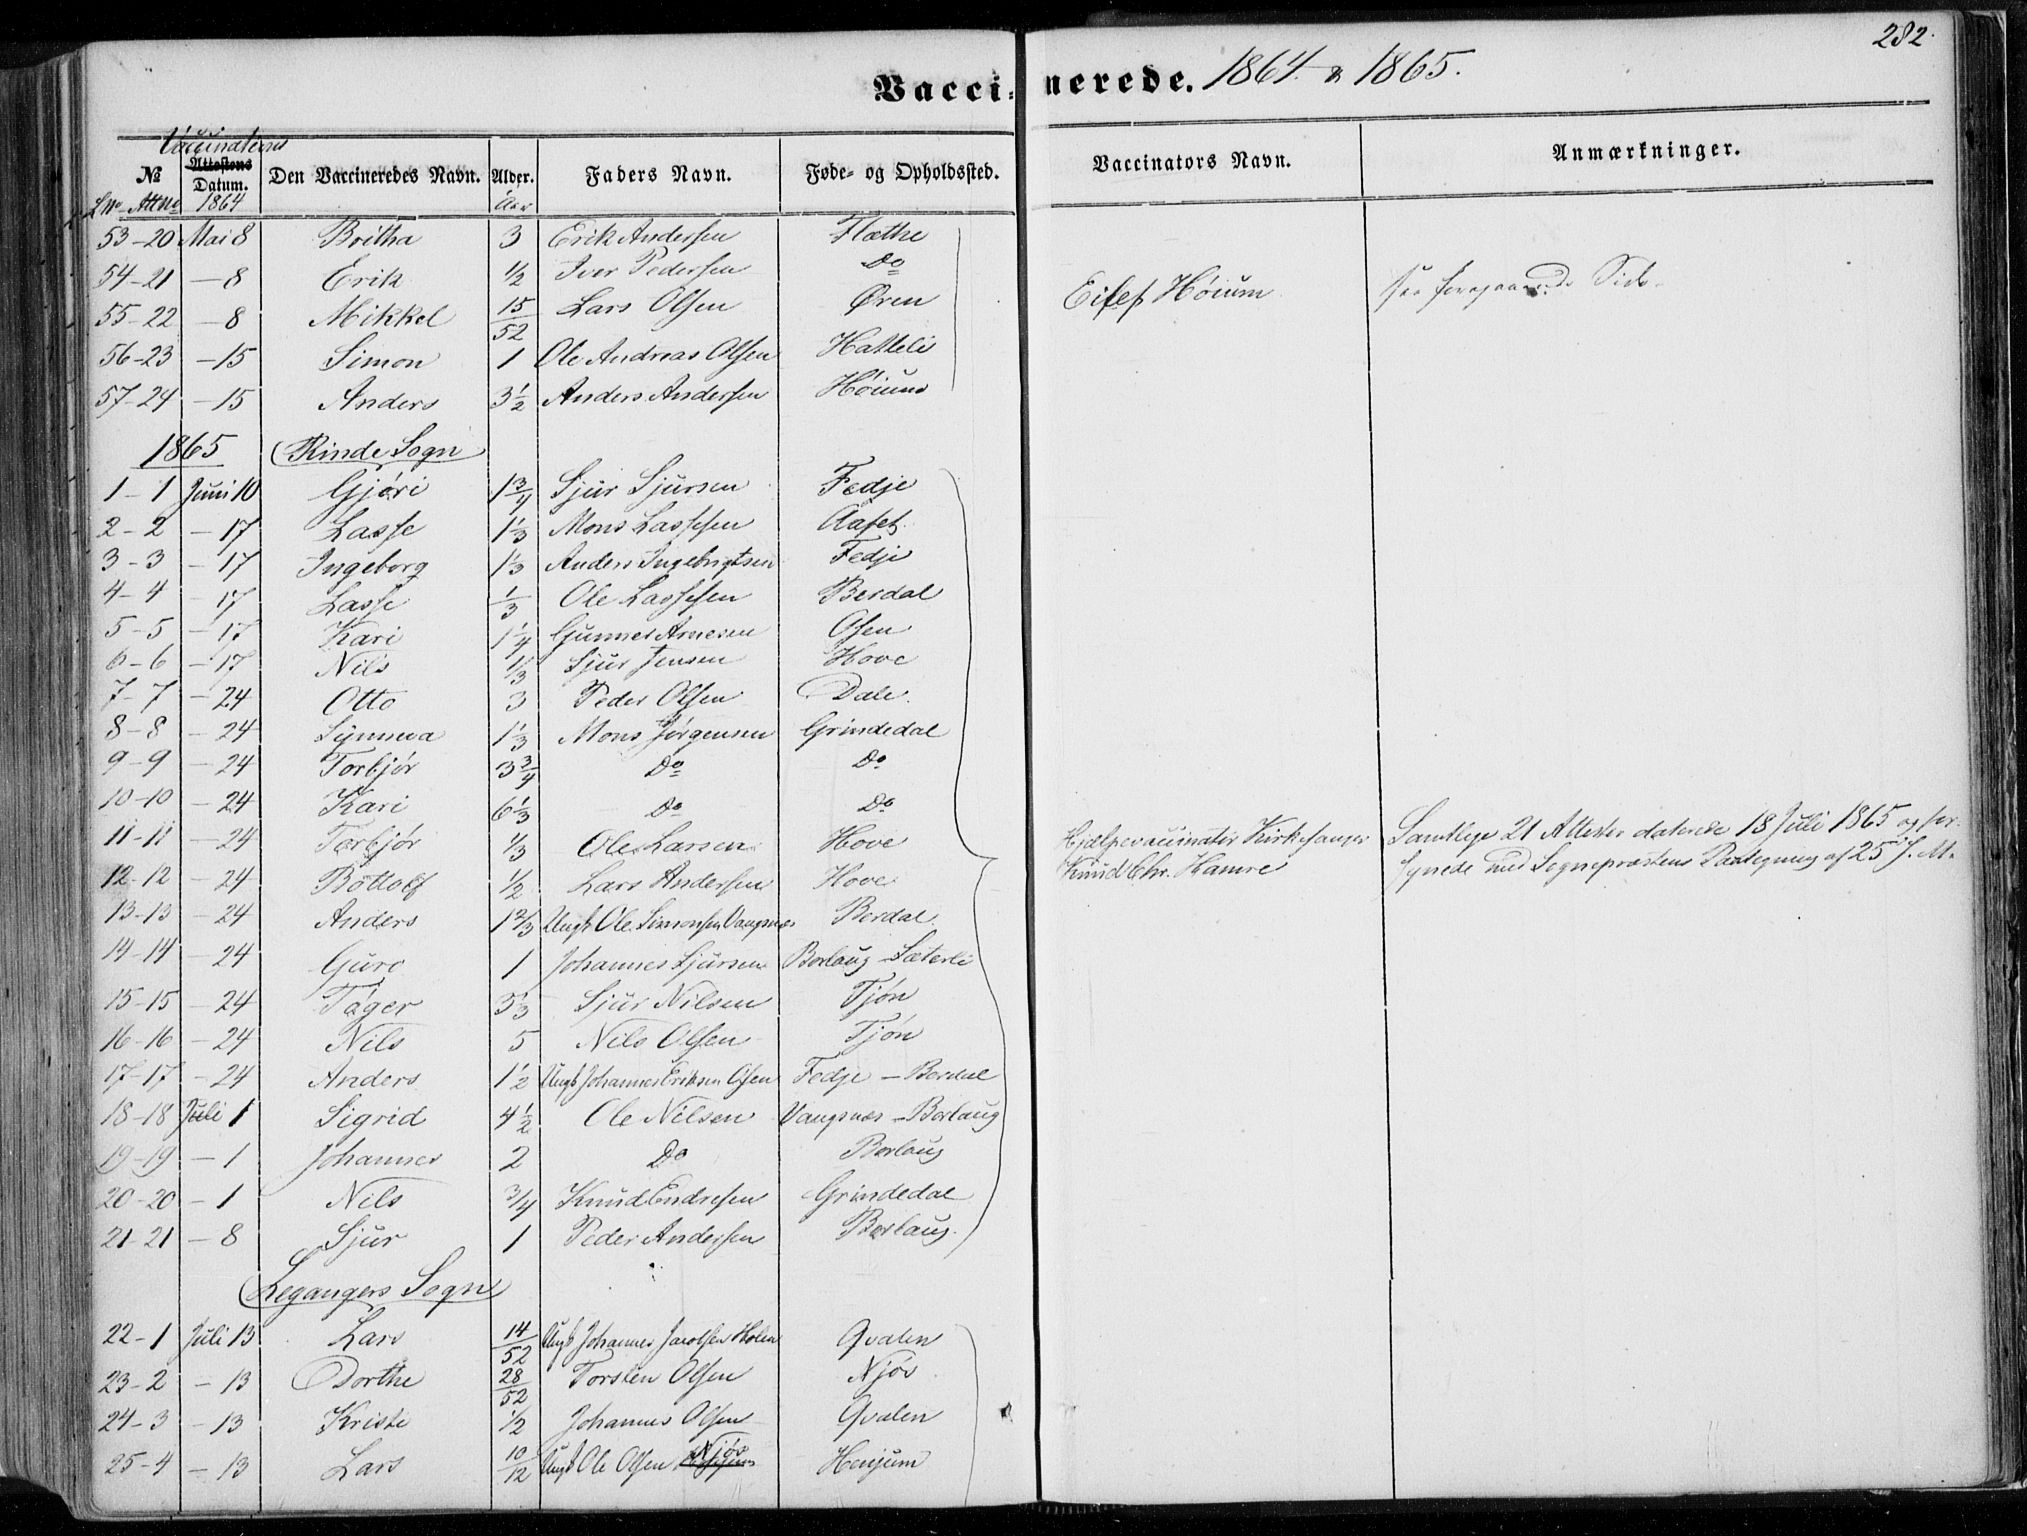 282.
Vaccinerede. 1864 & 1865.
Vaccinationens
№ Attestens Datum. Den Vaccineredes Navn. Alder. Faders Navn. Føde- og Opholdssted. Vaccinators Navn. Anmærkninger.
Lno Attno 1864 Aar
53-20 Mai 8 Britha 3 Erik Andersen Flæthe
54-21 - 8 Erik 1/2 Iver Pedersen Do Eilef Høium
55-22 - 8 Mikkel 15/52 Lars Olsen Øren
56-23 - 15 Simon 1 Ole Andreas Olsen Hatteli
57-24 - 15 Anders 3 1/2 Anders Andersen Høium
1865 Rinde Sogn
1-1 Juni 10 Gjøri 1 3/4 Sjur Sjursen Fedje
2-2 - 17 Lasse 1 1/3 Mons Lassesen Aafet
3-3 - 17 Ingeborg 1 1/3 Anders Ingebrigtsen Fedje
4-4 - 17 Lasse 1/3 Ole Lassesen Berdal
5-5 - 17 Kari 1 1/4 Gunner Arnesen Osen
6-6 - 17 Nils 1/3 Sjur Jensen Hove
7-7 - 24 Otto 3 Peder Olsen Dale
8-8 - 24 Synneva 1 1/3 Mons Jørgensen Grindedal
9-9 - 24 Torbjør 3 3/4 Do Do
10-10 - 24 Kari 6 1/3 Do Do
11-11 - 24 Torbjør 1/3 Ole Larsen Hove Hjelpevaccinatør Kirkesanger Samtlige 21 Attester daterede 18 Juli 1865 og for-
12-12 - 24 Bottolf 1/2 Lars Andersen Hove Knud Chr. Hamre synede med Sognepræstens Paategning af 25 s. M.
13-13 - 24 Anders 1 2/3 Ungk Ole Simonsen Vangsnæs Berdal
14-14 - 24 Guro 1 Johannes Sjursen Borlaug - Sæterli
15-15 - 24 Tøger 3 1/3 Sjur Nilsen Tjøn
16-16 - 24 Nils 5 Nils Olsen Tjøn
17-17 - 24 Anders 1 1/2 Ungk Johannes Eriksen Osen Fedje - Berdal
18-18 Juli 1 Sigrid 4 1/2 Ole Nilsen Vangsnæs - Borlaug
19-19 - 1 Johannes 2 Do Borlaug
20-20 - 1 Nils 3/4 Knud Endresen Grindedal
21-21 - 8 Sjur 1 Peder Andersen Borlaug
Legangers Sogn
22-1 Juli 13 Lars 14/52 Ungk Johannes Jacobsen Holen Qvalen
23-2 - 13 Dorthe 28/52 Torsten Olsen Njøs
24-3 - 13 Kristi 1/2 Johannes Olsen Qvalen
25-4 - 13 Lars 10/12 Ungk Ole Olsen Njøs Henjum